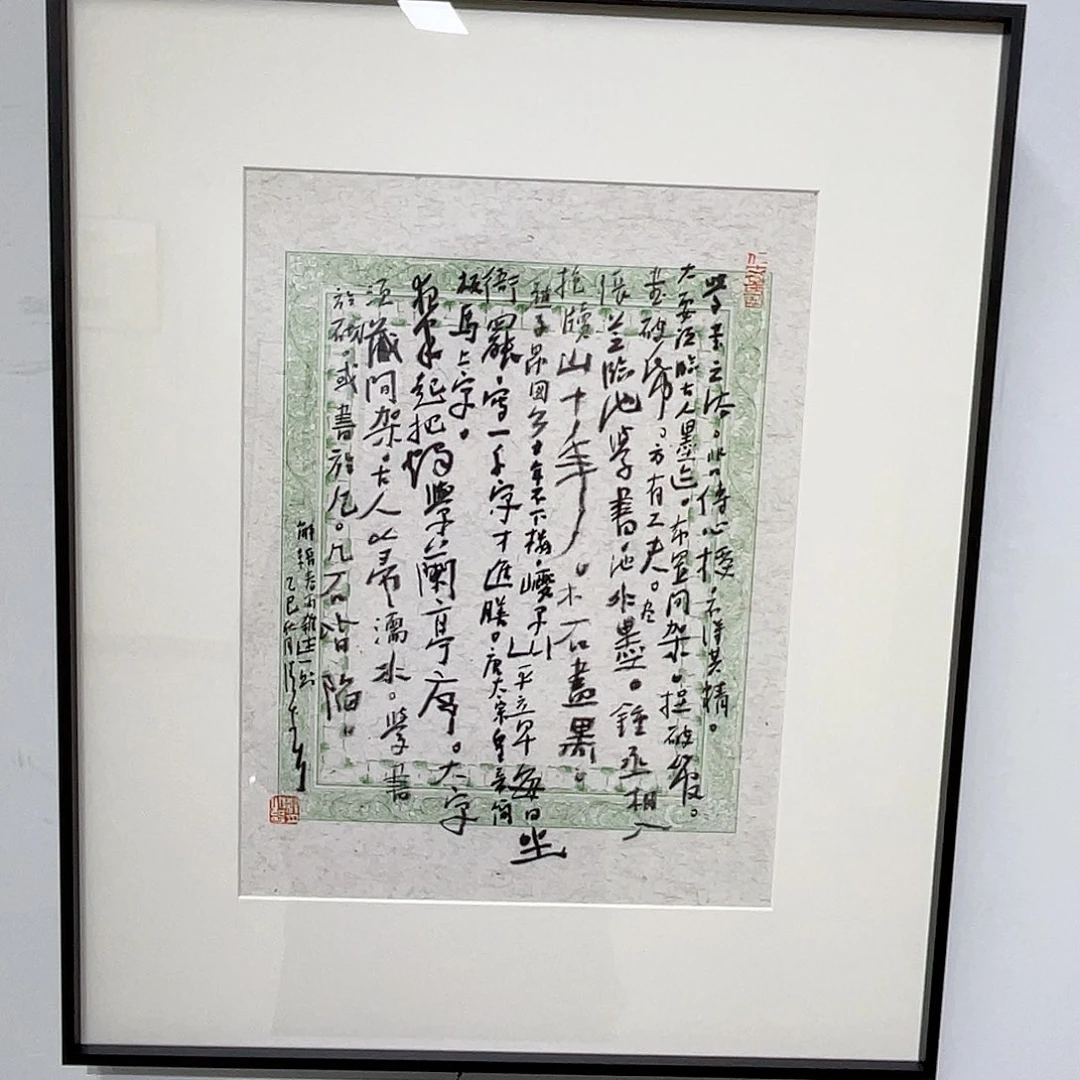 學書之法。非口传心授。不得其精。
大要须臨古人墨迹。布置间架。捏破管。
書破纸。方有工夫。尽
張芝臨池學書池水墨。鍾丞相入
抱犢山十年。木石盡黑。
趙子昂国公十年不下樓。巙子山平章每日坐
衙罷。寫一千字才進膳。唐太宗皇帝简
板馬上字。
夜半起把燭學蘭亭序。大字
须藏间架。古人以帚濡水。學書
於砌。或書於几。几石皆陷。
解縉春雨雜述一
乙巳秋月